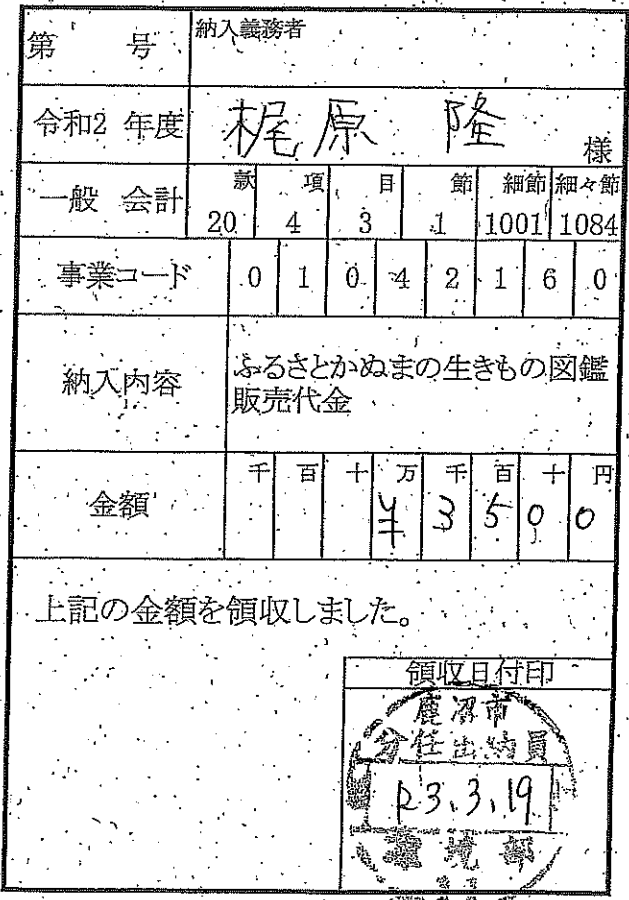 第 号
納入義務者
令和2 年度
梶原 隆 様
一般 会計
款 項 目 節 細節 細々節
20 4 3 1 1001 1084
事業コード 0 1 0 4 2 1 6 0
納入内容
ふるさとかぬまの生きもの図鑑
販売代金
千 百 十 万 千 百 十 円
金額 ¥ 3 5 0 0
上記の金額を領収しました。
領収日付印
鹿沼市
分任出納員
R3.3.19
環境部